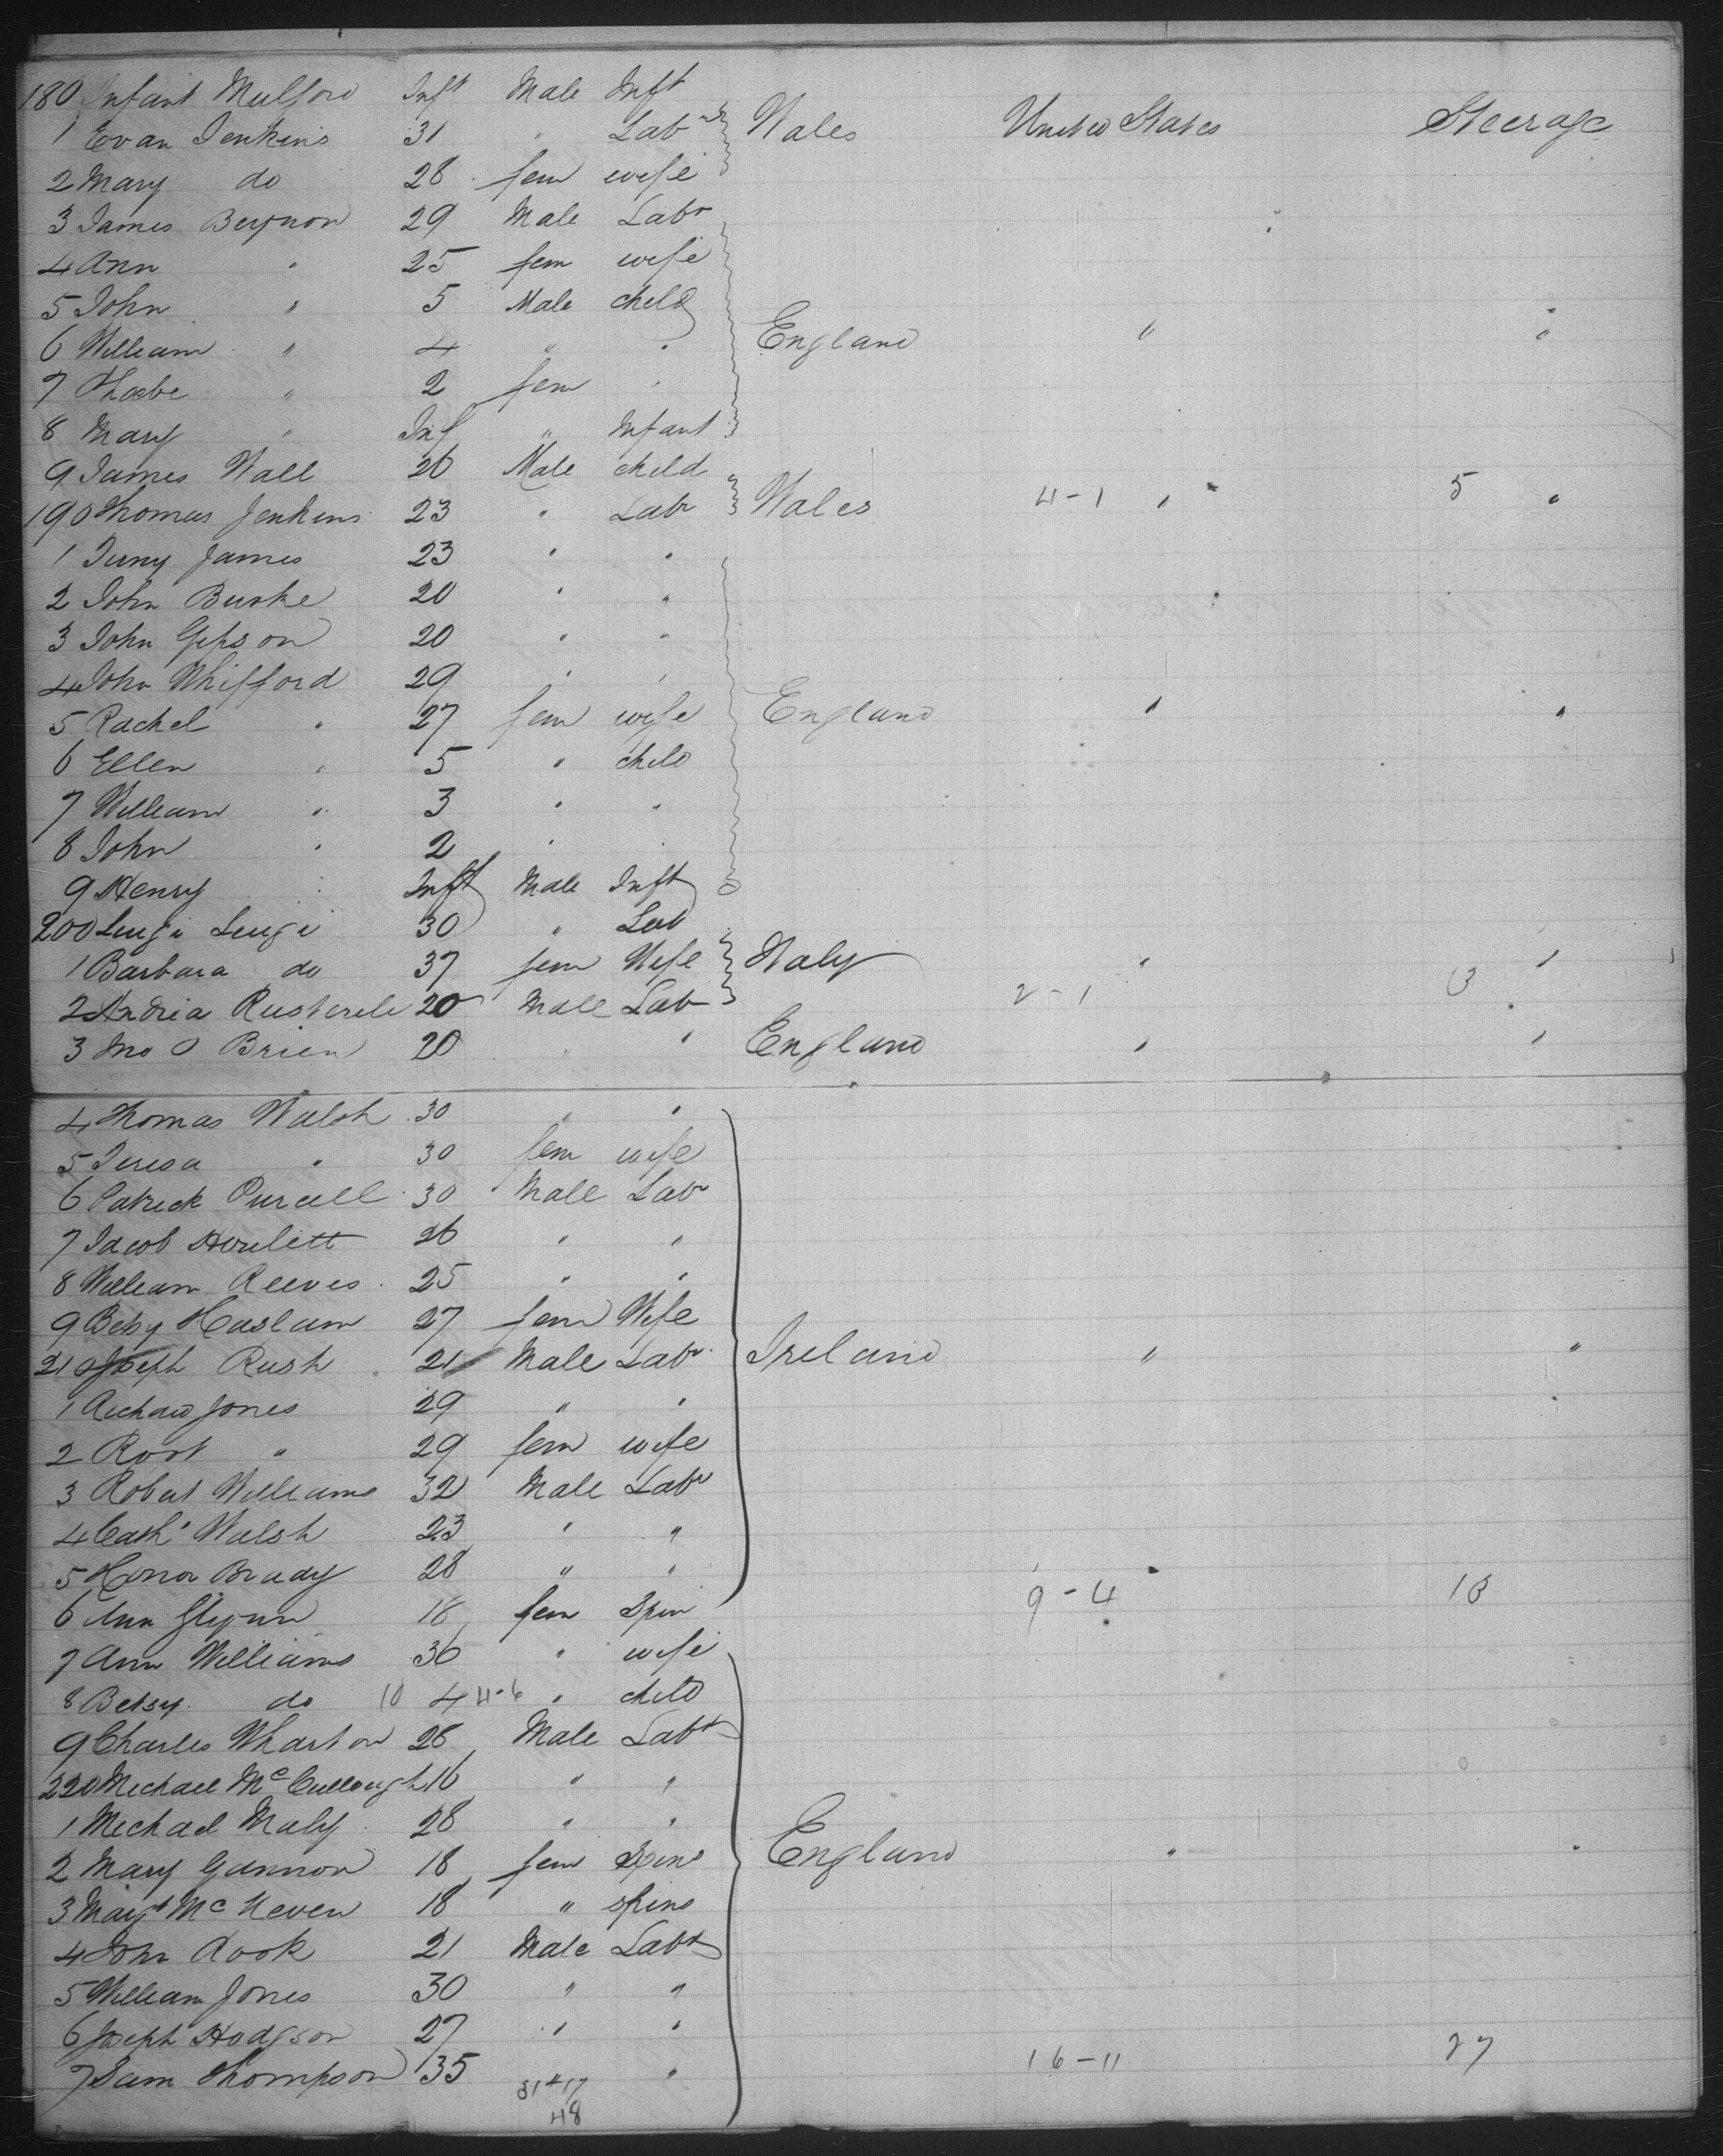 180 Infant Mulford Inft Male Inft
1 Evan Jenkins 31 " Labr Wales United States Steerage
2 Mary do 28 fem wife
3 James Beynon 29 Male Labr
4 Ann " 25 fem wife
5 John " 5 Male child
6 William " 4 " " England " "
7 Phoebe " 2 fem "
8 Mary " Inf " Infant
9 James Wall 26 Male child
190 Thomas Jenkins 23 " Labr Wales 4-1 " 5 "
1 James 23 " "
2 John Burke 20 " "
3 John Gipson 20 " "
4 John Whifford 29 " "
5 Rachel " 27 fem wife England " "
6 Ellen " 5 " child
7 William " 3 " "
8 John " 2 " "
9 Henry " Inft Male Inft
200 Luigi Luigi 30 " Lab
1 Barbara do 37 fem Wife Italy " "
2 Andria 20 Male Lab 2-1 3
3 Jno O Brien 20 " " England " "
4 Thomas Walsh 30 " "
5 Teresa " 30 fem wife
6 Patrick Purcell 30 Male Labr
7 Jacob Howlett 26 " "
8 William Reeves 25 " "
9 Betsy Haslam 27 fem Wife
210 Joseph Rush 21 Male Labr Ireland " "
1 Richard Jones 29 " "
2 " 29 fem wife
3 Robert Williams 32 Male Labr
4 Cath Walsh 23 " "
5 Honor Brady 28 " "
6 Ann Glynn 18 fem Spin 9-4 13
7 Ann Williams 36 " wife
8 Betsy do 10 4 4-6 " child
9 Charles Wharton 28 Male Labr
220 Michael McCullough 16 " "
1 Michael Maly 28 " "
2 Mary Gannon 18 fem Spins England " "
3 Margt McKeven 18 " spins
4 John Rook 21 Male Labr
5 William Jones 30 " "
6 Joseph Hodgson 27 " "
7 Sam Thompson 35 " 16-11 27
31 17
48